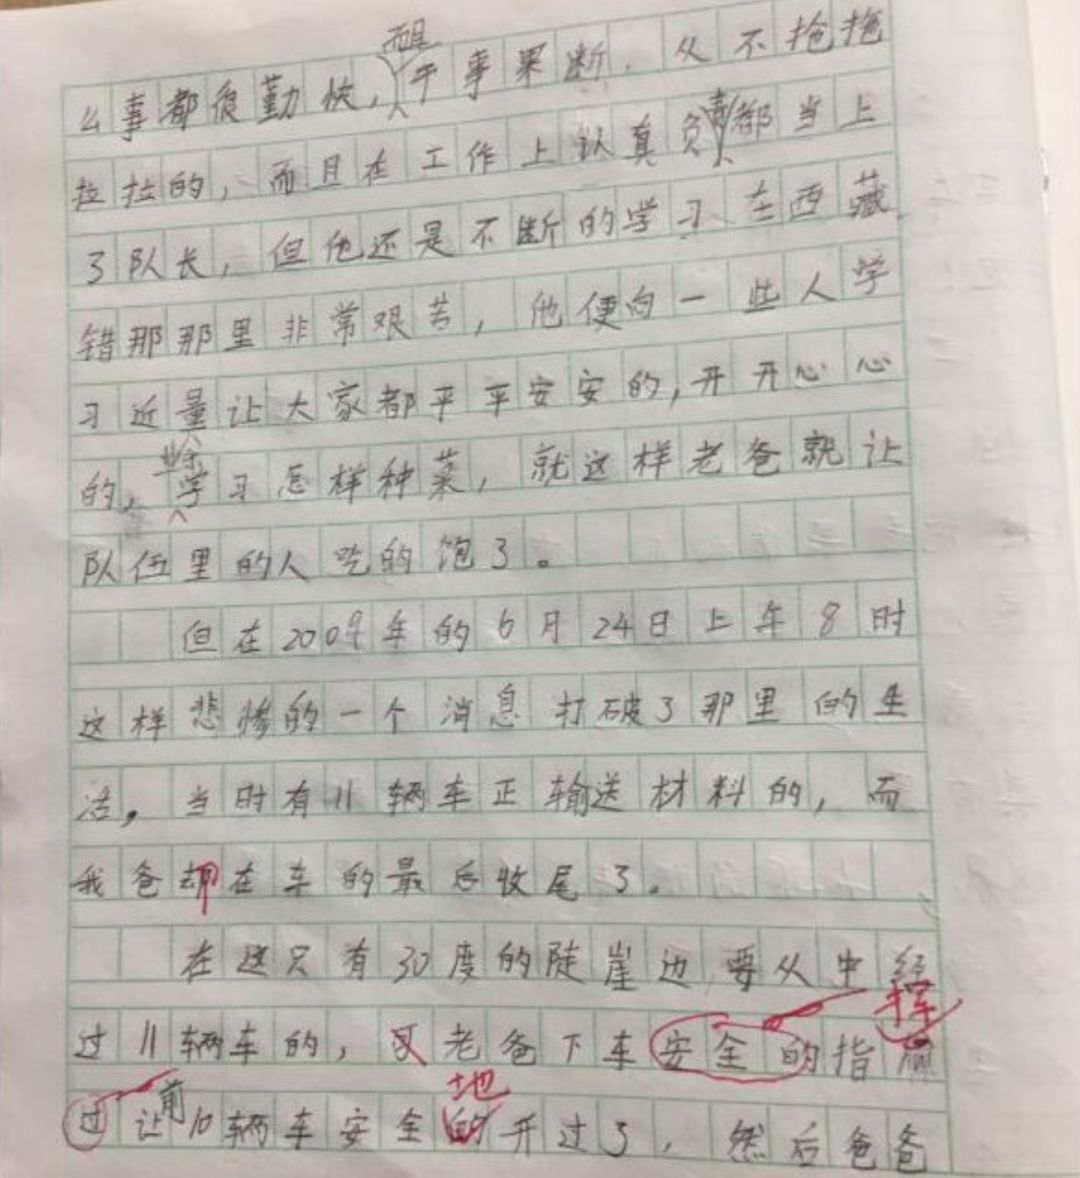 而且
么事都很勤快，干事果断．从不拖拖
拉拉的，而且在工作上认真负责都当上
了队长，但他还是不断的学习．在西藏
错那那里非常艰苦，他便向一些人学
习近量让大家都平平安安的，开开心心
的，学习怎样种菜，就这样老爸就让
队伍里的人吃的饱了。
但在2009年的6月24日上午8时
这样悲惨的一个消息打破了那里的生
活，当时有11辆车正输送材料的，而
我爸却在车的最后收尾了。
在这只有30度的陡崖边要从中经
挥
过11辆车的，老爸下车安全的指
地
过让前10辆车安全的开过了，然后爸爸